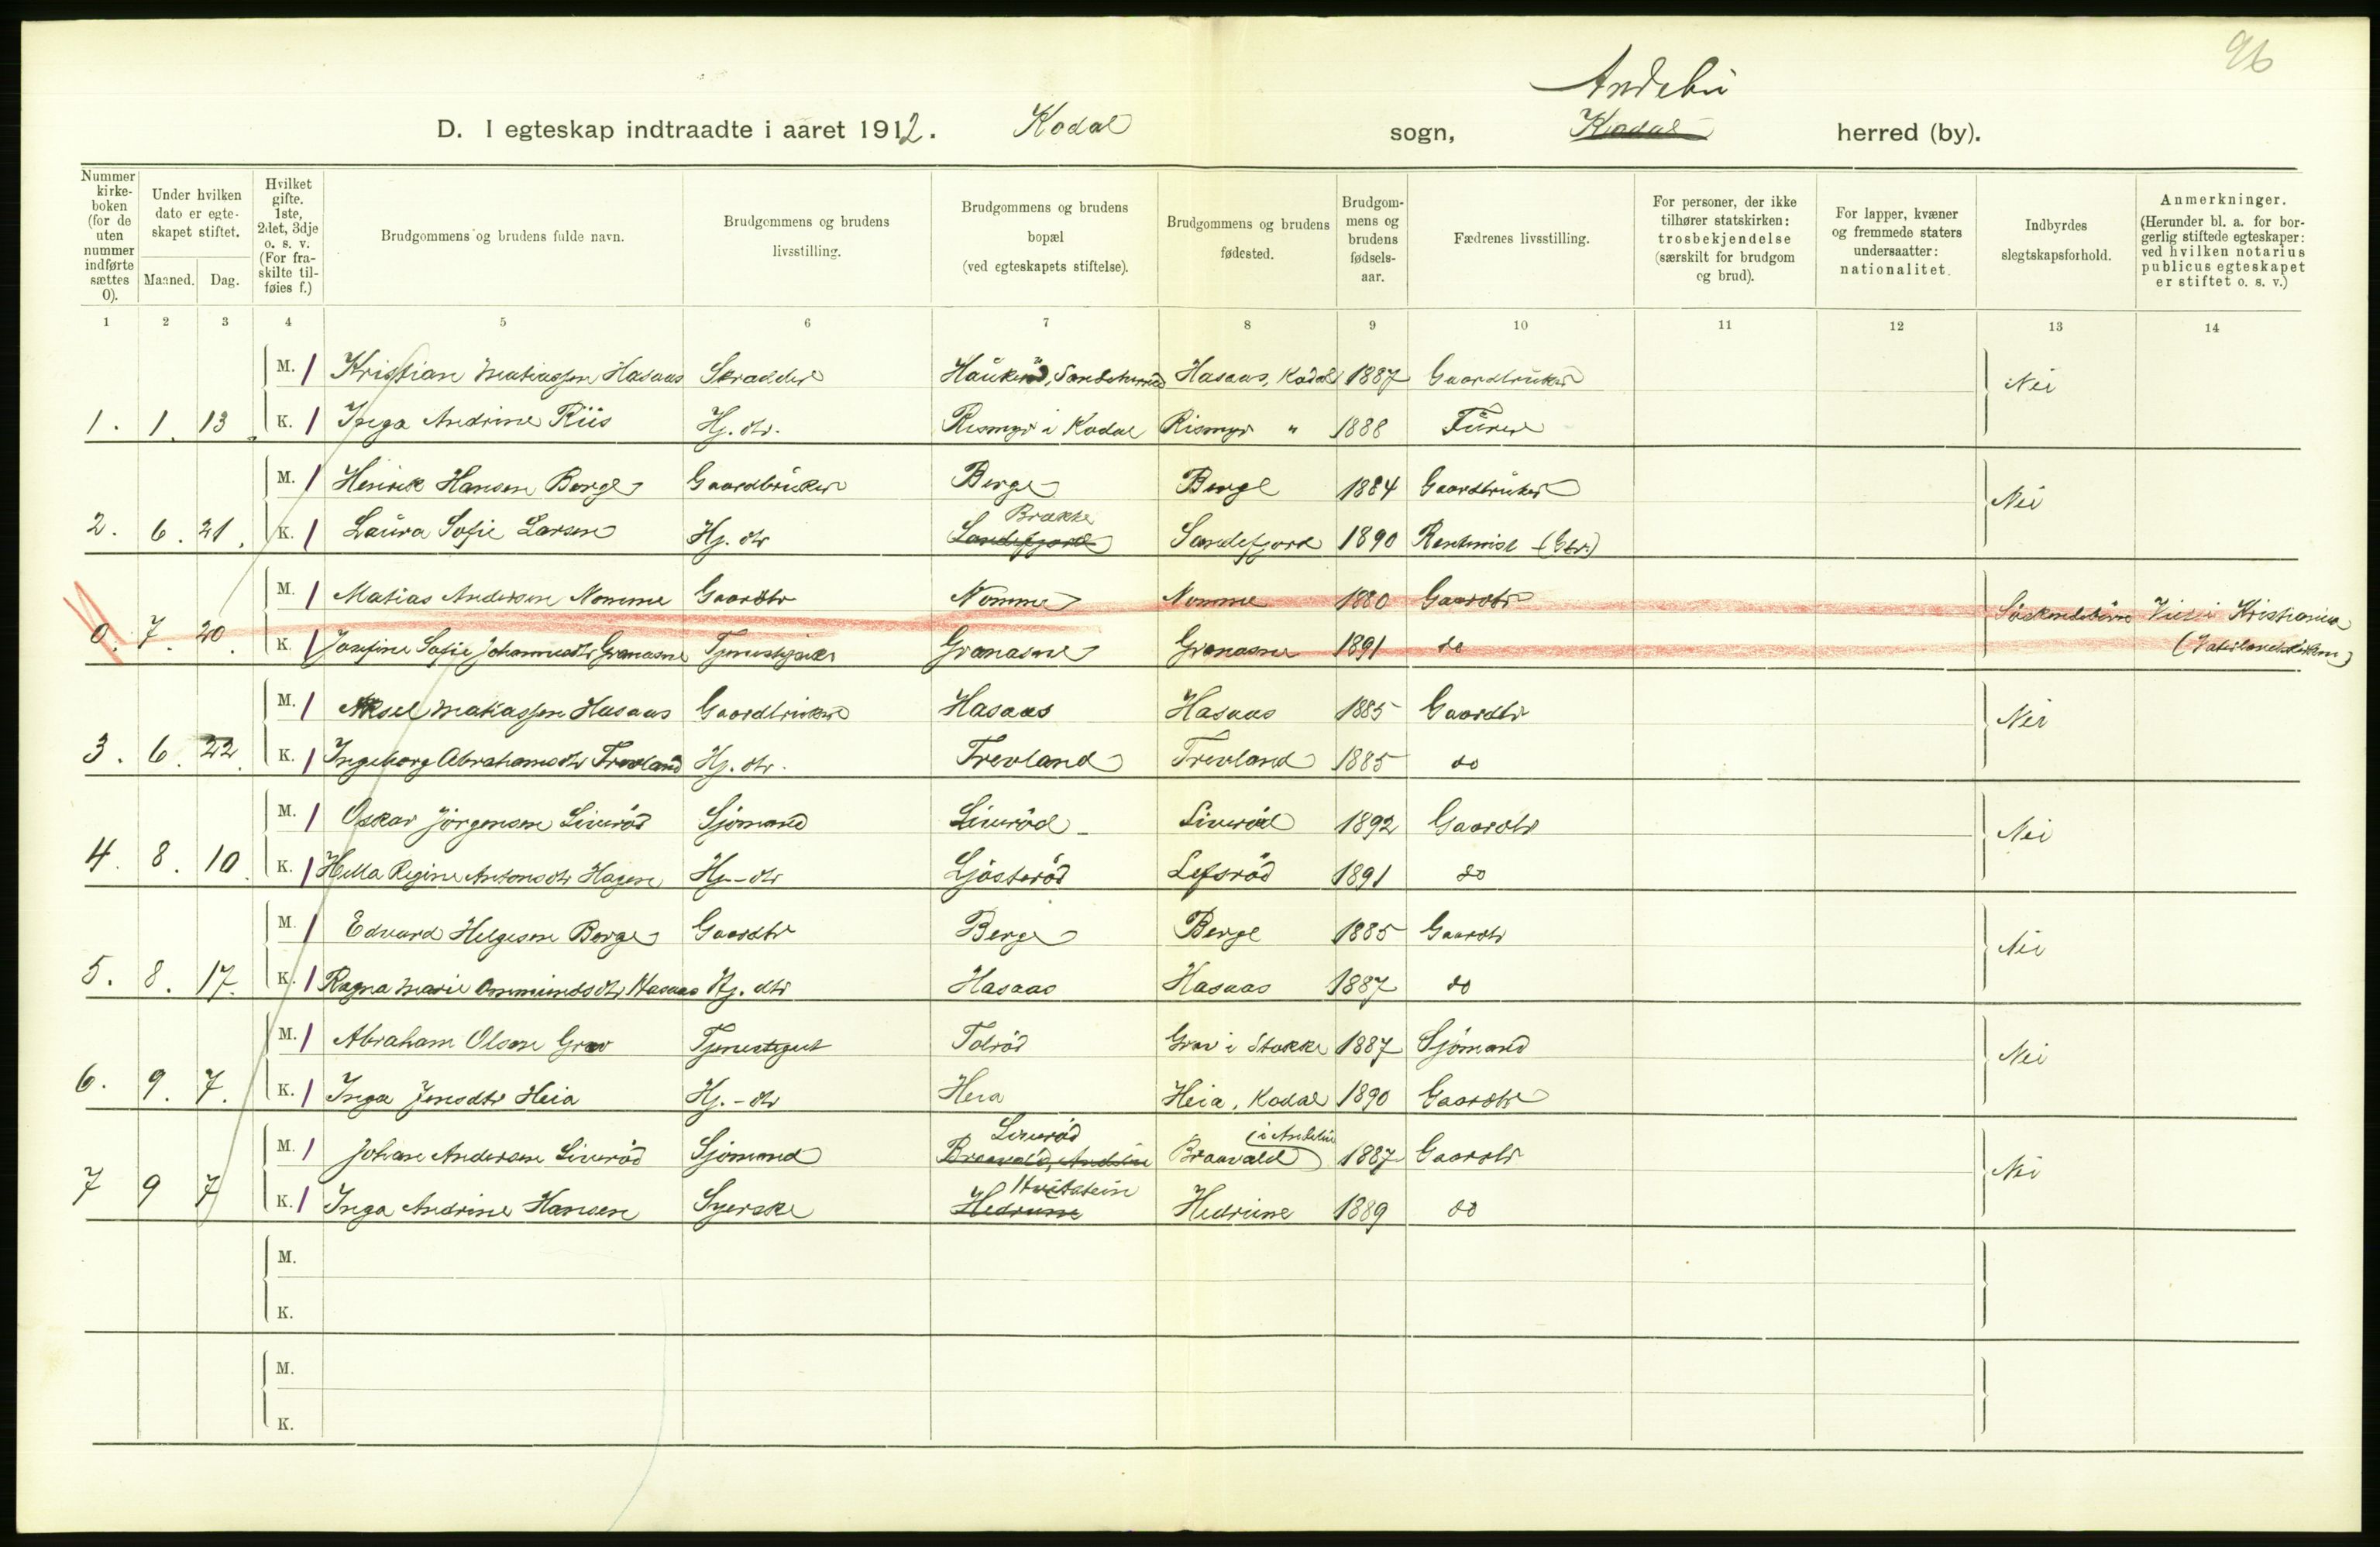 96
Andebu
D. I egteskap indtraadte i aaret 1912. Kodal sogn, Kodal herred (by).
Nummer kirke-boken (for de uten nummer indførte sættes 0). | Under hvilken dato er egte-skapet stiftet. Maaned. Dag. | Hvilket gifte. 1ste, 2det, 3dje o. s. v. (For fra-skilte til-føies f.) | Brudgommens og brudens fulde navn. | Brudgommens og brudens livsstilling. | Brudgommens og brudens bopæl (ved egteskapets stiftelse). | Brudgommens og brudens fødested. | Brudgom-mens og brudens fødsels-aar. | Fædrenes livsstilling. | For personer, der ikke tilhører statskirken: trosbekjendelse (særskilt for brudgom og brud). | For lapper, kvæner og fremmede staters undersaatter: nationalitet. | Indbyrdes slegtskapsforhold. | Anmerkninger. (Herunder bl. a. for bor-gerlig stiftede egteskaper: ved hvilken notarius publicus egteskapet er stiftet o. s. v.)
1 2 3 4 5 6 7 8 9 10 11 12 13 14
M. 1 Kristian Matiassen Hasaas Skrædder Haukerød, Sandeherred Hasaas, Kodal 1887 Gaardbruker Nei
1. 1. 13. K. 1 Inga Andrine Riis Hj. dtr. Rismyr i Kodal Rismyr " 1888 Furer
M. 1 Henrik Hansen Berge Gaardbruker Berge Berge 1884 Gaardbruker Nei
2. 6. 21. K. 1 Laura Sofie Larsen Hj. dtr Brække Sandefjord Sandefjord 1890 (Gbr.)
M. 1 Matias Andersen Nomme Gaardbr Nomme Nomme 1880 Gaardbr Søskendebørn Viet i Kristiania
0. 7. 20. K. 1 Josefine Sofie Johannesdtr Granaasne Tjenestepike Granaasne Granaasne 1891 do (Vaterlandskirken)
M. 1 Aksel Matiassen Hasaas Gaardbruker Hasaas Hasaas 1885 Gaardbr Nei
3. 6. 22. K. 1 Ingeborg Abrahamsdtr Trevland Hj. dtr. Trevland Trevland 1885 do
M. 1 Oskar Jörgensen Liveröd Sjömand Liveröd Liveröd 1892 Gaardbr Nei
4. 8. 10. K. 1 Helia Regine Antonsdtr Hagen Hj.-dtr Gjösteröd Lefsröd 1891 do
M. 1 Edvard Helgesen Berge Gaardbr Berge Berge 1885 Gaardbr Nei
5. 8. 17. K. 1 Ragna Marie Ommundsdtr Hasaas Hj. dtr Hasaas Hasaas 1887 do
M. 1 Abraham Olsen Grav Tjenestegut Tolröd Grav i Stokke 1887 Sjömand Nei
6. 9. 7. K. 1 Inga Jensdtr Heia Hj.-dtr Heia Heia, Kodal 1890 Gaardbr
M. 1 Johan Andersen Liveröd Sjömand Liveröd Braavald, Andebu Braavald (i Andebu 1887 Gaardbr Nei
7 9 7 K. 1 Inga Andrine Hansen Syerske Hvitstein Hedrum Hedrum 1889 do
M.
K.
M.
K.